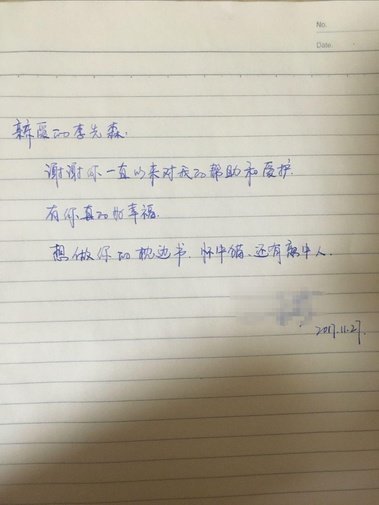 No.
Date.
亲爱的李先森:
谢谢你一直以来对我的帮助和爱护.
有你真的好幸福.
想做你的枕边书、怀中猫、还有意中人.
2017.11.27.